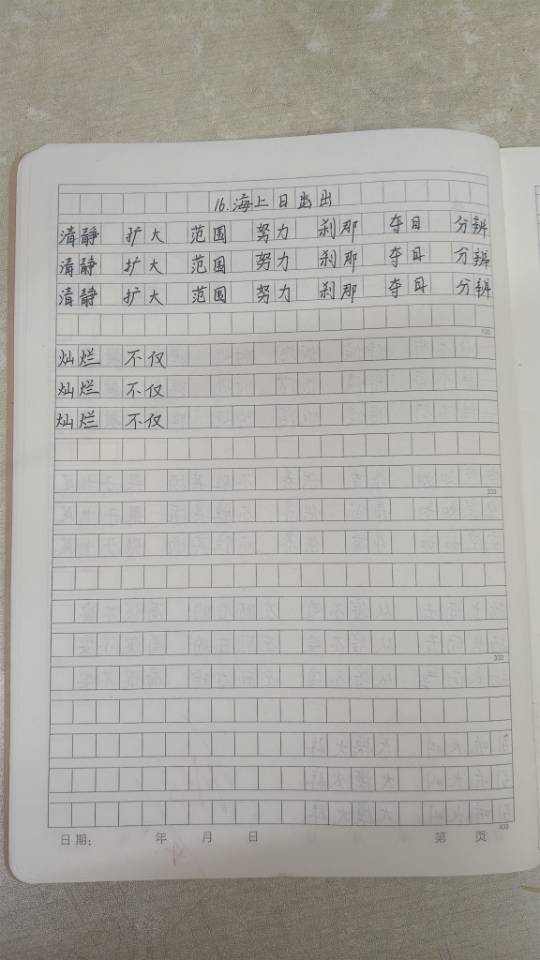 16.海上日出出
清静 扩大 范围 努力 刹那 夺目 分辨
清静 扩大 范围 努力 刹那 夺目 分辨
清静 扩大 范围 努力 刹那 夺目 分辨
100
灿烂 不仅
灿烂 不仅
灿烂 不仅
200
300
400
日期： 年 月 日 第 页